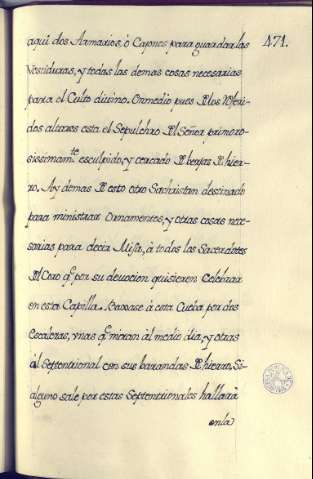 471.
aqui dos Armarios, ò Caxones, para guardar las
Vestiduras, y todas las demas cosas necesarias
para el Culto divino. En medio pues de los referi-
dos altares esta el Sepulchro del Señor primoro-
sissimamte esculpido, y cercado de berjas de hier-
ro. Ay demas de esto otro Sachristan destinado
para ministrar Ornamentos, y otras cosas nece-
sarias para decir Missa, à todos los Sacerdotes
del Coro q̃ por su devocion quisieren celebrar
en esta Capilla. Baxase à esta Cueba por dos
Escaleras, vnas q̃ miran àl medio dia, y otras
àl Septentrional con sus barandas de hierro. Si
alguno sale por estas Septentrionales hallarà
en la